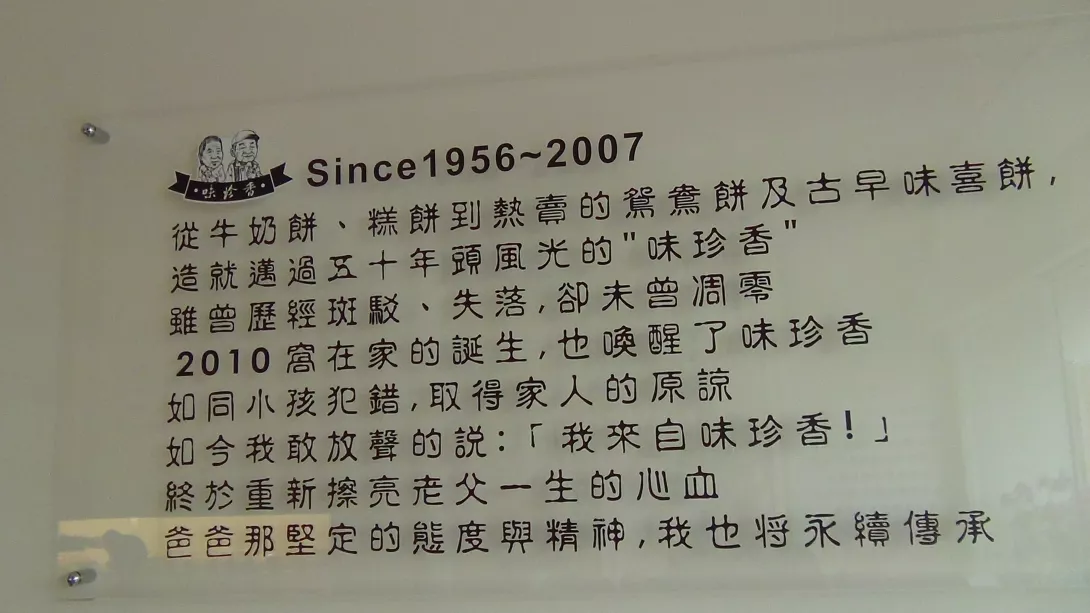 味珍香
Since1956~2007
從牛奶餅、糕餅到熱賣的鴛鴦餅及古早味喜餅,
造就邁過五十年頭風光的"味珍香"
雖曾歷經斑駁、失落,卻未曾凋零
2010窩在家的誕生,也喚醒了味珍香
如同小孩犯錯,取得家人的原諒
如今我敢放聲的說:「我來自味珍香!」
終於重新擦亮老父一生的心血
爸爸那堅定的態度與精神,我也將永續傳承